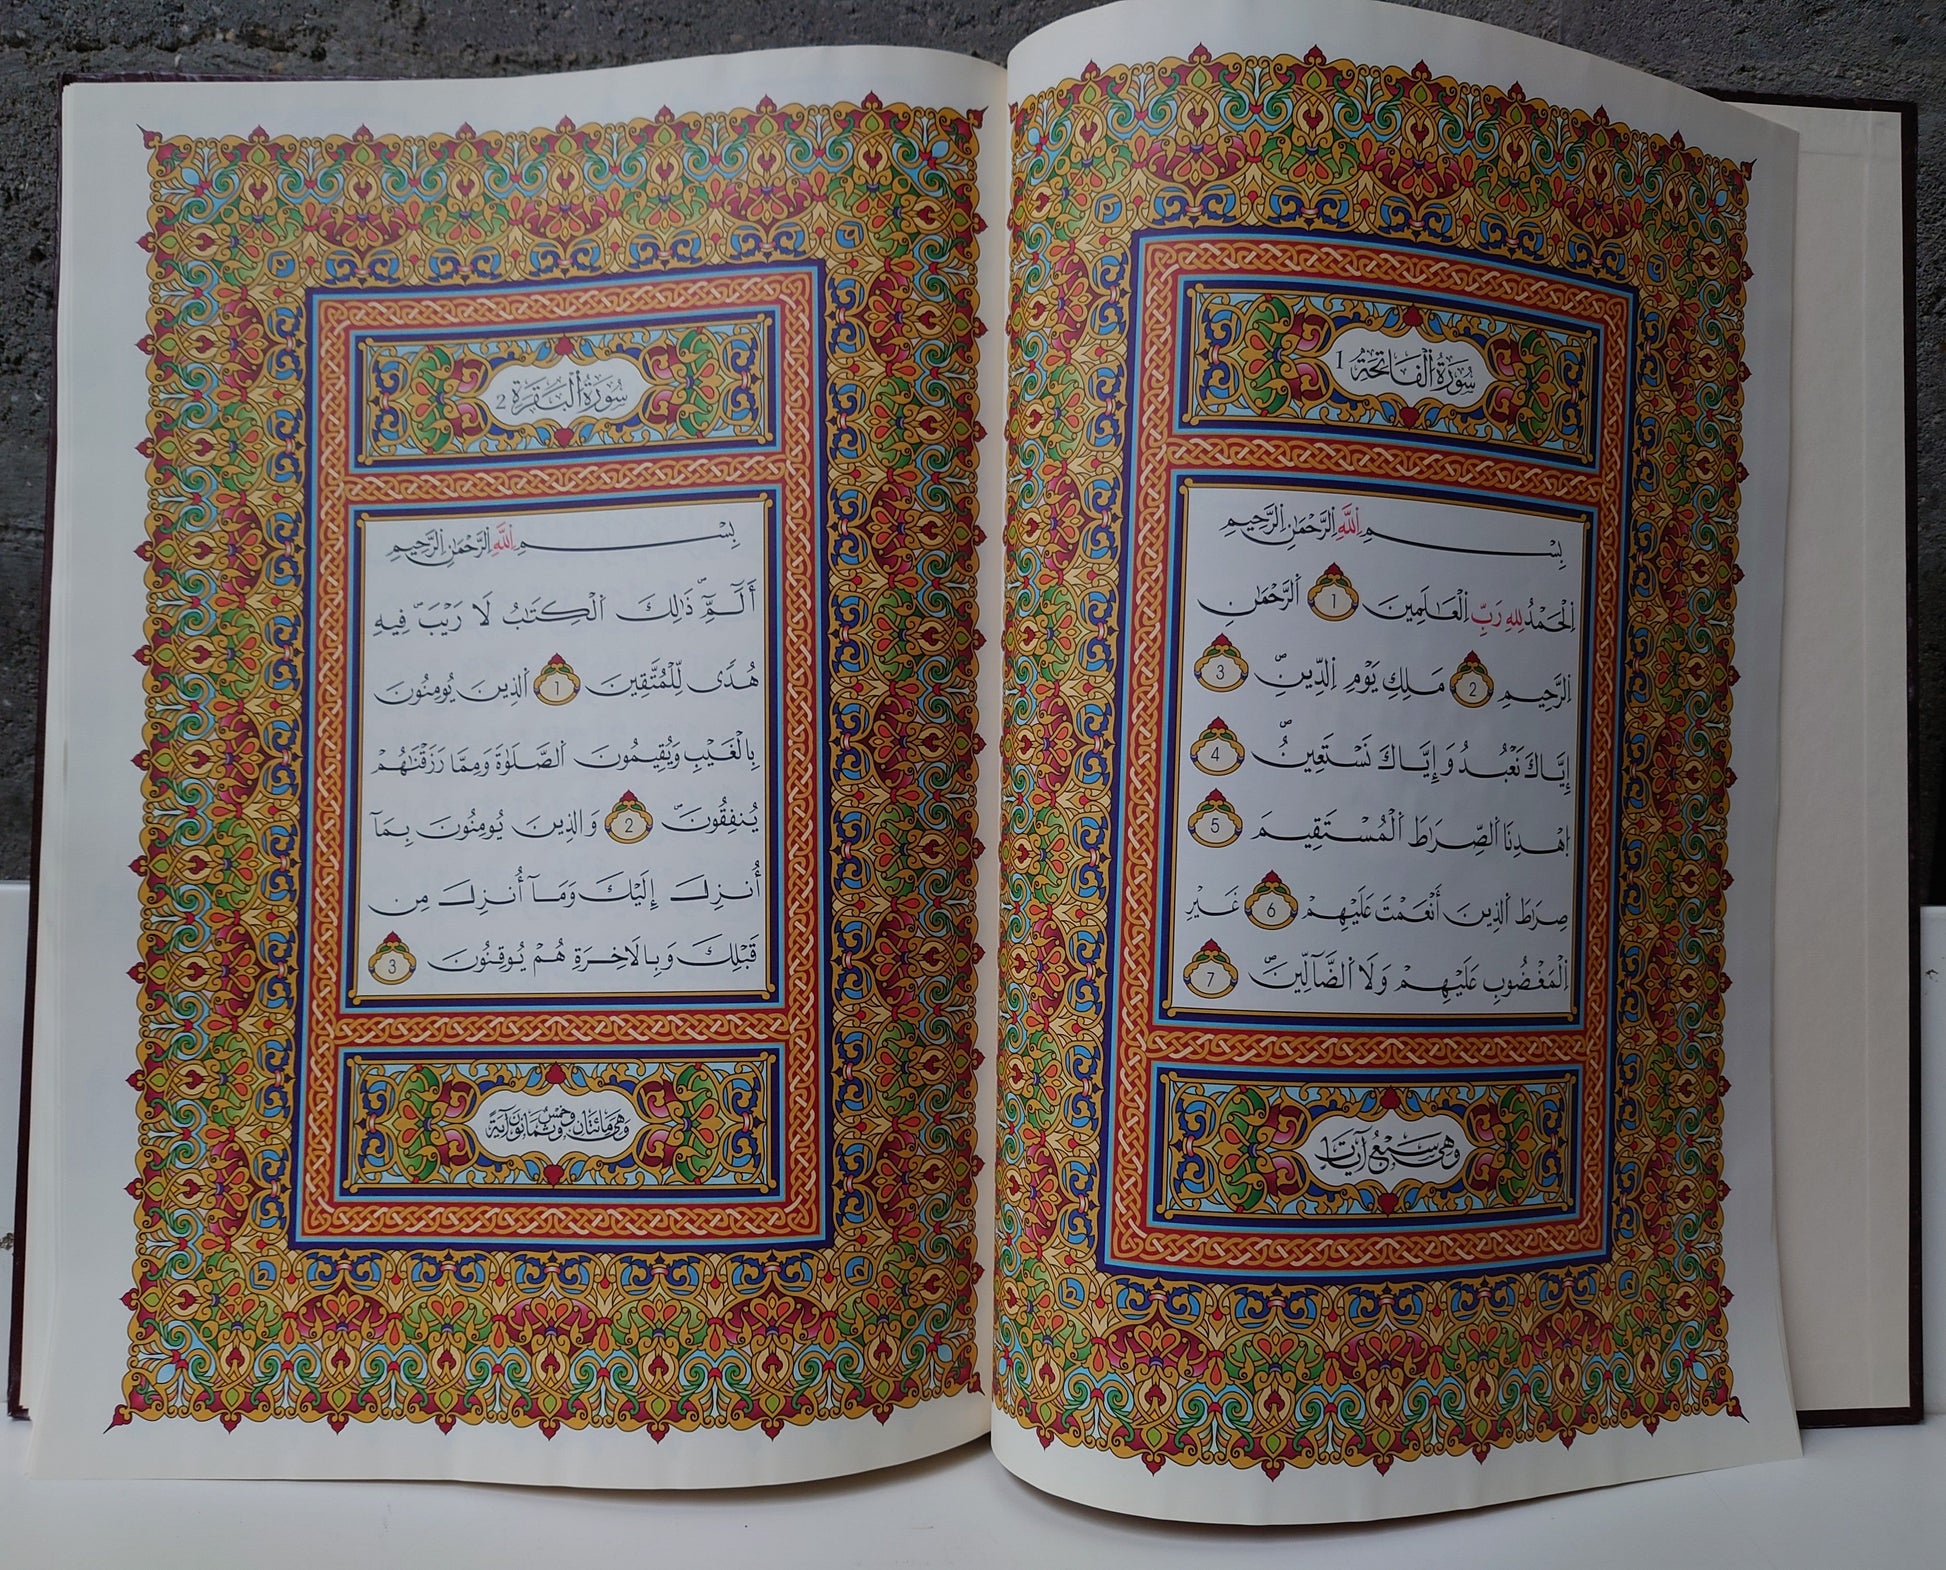 سُورَةُ اَ۬لْفَاتِحَةِ 1
بِسْمِ اِ۬للَّهِ اِ۬لرَّحْمَٰنِ اِ۬لرَّحِيمِ
اِ۬لْحَمْدُ لِلهِ رَبِّ اِ۬لْعَٰلَمِينَ 1 اَ۬لرَّحْمَٰنِ
اِ۬لرَّحِيمِ 2 مَلِكِ يَوْمِ اِ۬لدِّينِۖ 3
إِيَّاكَ نَعْبُدُ وَإِيَّاكَ نَسْتَعِينُۖ 4
اُ۪هْدِنَا اَ۬لصِّرَٰطَ اَ۬لْمُسْتَقِيمَ 5
صِرَٰطَ اَ۬لذِينَ أَنْعَمْتَ عَلَيْهِمْ 6 غَيْرِ
اِ۬لْمَغْضُوبِ عَلَيْهِمْ وَلَا اَ۬لضَّآلِّينَۖ 7
وَهِيَ سَبْعُ آيَاتٍ
سُورَةُ اُ۬لْبَقَرَةِ 2
بِسْمِ اِ۬للَّهِ اِ۬لرَّحْمَٰنِ اِ۬لرَّحِيمِ
أَلَٓمِّٓۖ ذَٰلِكَ اَ۬لْكِتَٰبُ لَا رَيْبَۖ فِيهِ
هُدىٗ لِّلْمُتَّقِينَ 1 اَ۬لذِينَ يُومِنُونَ
بِالْغَيْبِ وَيُقِيمُونَ اَ۬لصَّلَوٰةَ وَمِمَّا رَزَقْنَٰهُمْ
يُنفِقُونَۖ 2 وَالذِينَ يُومِنُونَ بِمَآ
أُنزِلَ إِلَيْكَ وَمَآ أُنزِلَ مِن
قَبْلِكَ وَبِالَاخِرَةِ هُمْ يُوقِنُونَ 3
وَهِيَ مَائَتَانِ وَخَمْسٌ وَثَمَانُونَ آيَةً